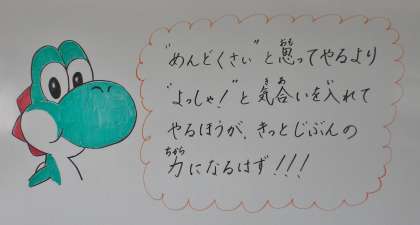 "めんどくさい"と思ってやるより
"よっしゃ!"と気合いを入れて
やるほうが、きっとじぶんの
力になるはず!!!